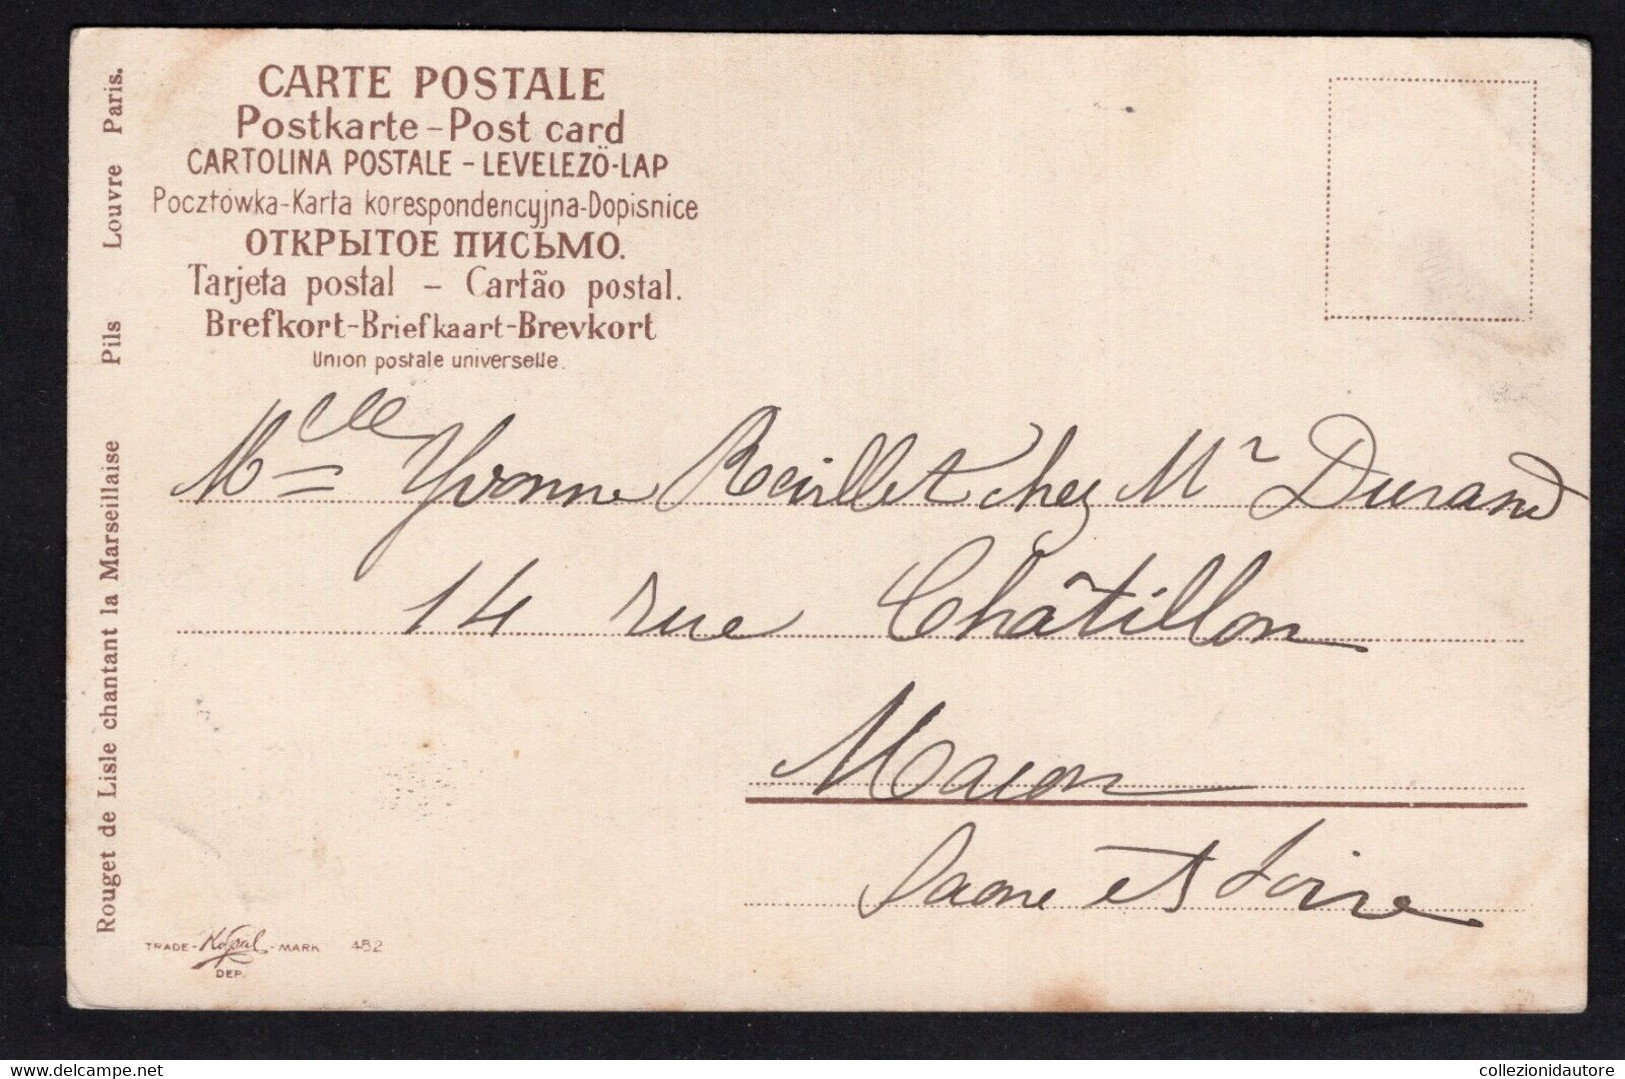 CARTE POSTALE
Postkarte-Post card
CARTOLINA POSTALE - LEVELEZÖ-LAP
Pocztówka-Karta korespondencyjna-Dopisnice
ОТКРЫТОЕ ПИСЬМО.
Tarjeta postal - Cartão postal.
Brefkort-Briefkaart-Brevkort
Union postale universelle.
Rouget de Lisle chantant la Marseillaise Pils Louvre Paris.
Mcelle Yvonne Reillet chez Mr Durand
14 rue Châtillon
Macon
Saone et Loire
TRADE-Kopal-MARK 482
DEP.
delcampe.net
collezionidautore